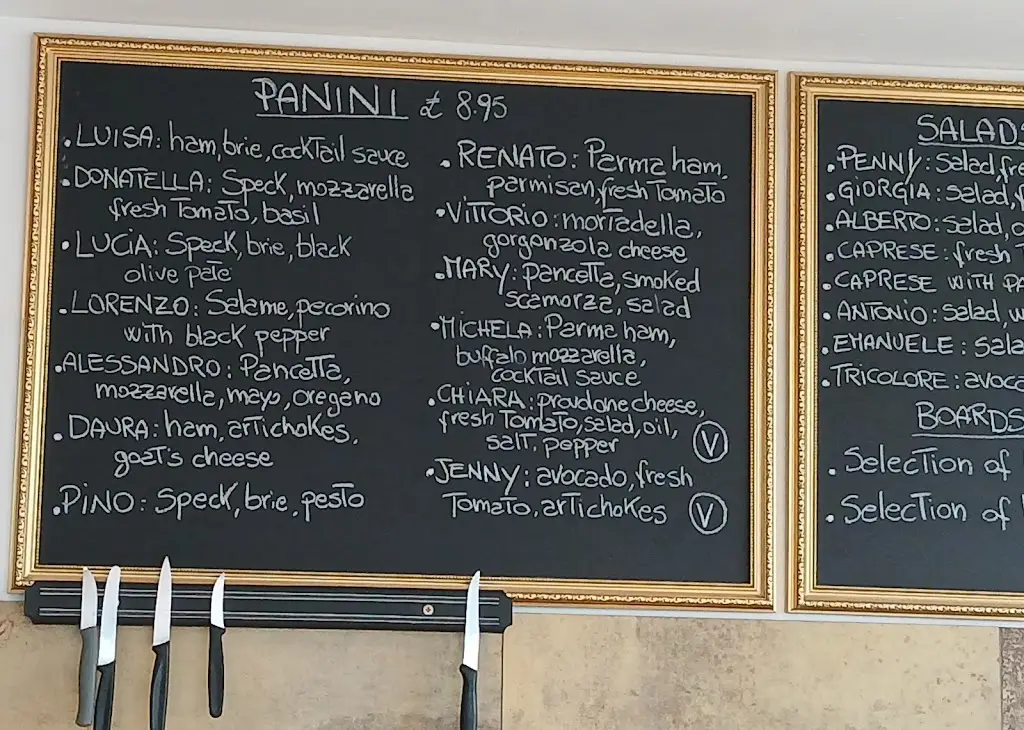 PANINI £ 8.95
.LUISA: ham, brie, cockTail sauce
.DONATELLA: Speck, mozzarella
fresh Tomato, basil
.LUCIA: Speck, brie, black
olive pate
.LORENZO: Salame, pecorino
with black pepper
.ALESSANDRO: Pancetta,
mozzarella, mayo, oregano
.DAURA: ham, arTichokes,
goat's cheese
.PINO: Speck, brie, pesto
.RENATO: Parma ham,
parmisan, fresh Tomato
.VITTORIO: mortadella,
gorgonzola cheese
.MARY: pancetta, smoked
scamorza, salad
.MICHELA: Parma ham,
buffalo mozzarella,
cockTail sauce
.CHIARA: provdone cheese,
fresh Tomato, salad, oil,
salt, pepper V
.JENNY: avocado, fresh
Tomato, arTichokes V
SALADS
.PENNY: salad, fre
.GIORGIA: salad,
.ALBERTO: salad,
.CAPRESE: fresh
.CAPRESE WITH PA
.ANTONIO: salad, w
.EMANUELE: sala
.TRICOLORE: avoca
BOARDS
.Selection of
.Selection of